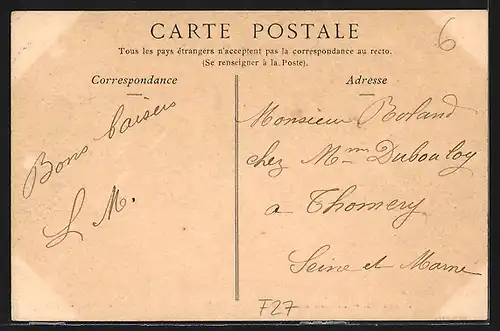 CARTE POSTALE
Tous les pays étrangers n'acceptent pas la correspondance au recto.
(Se renseigner à la Poste).
Correspondance
Bons baisers
L M.
Adresse
Monsieur Roland
chez Mme Dubouloy
a Thomery
Seine et Marne
6
F27